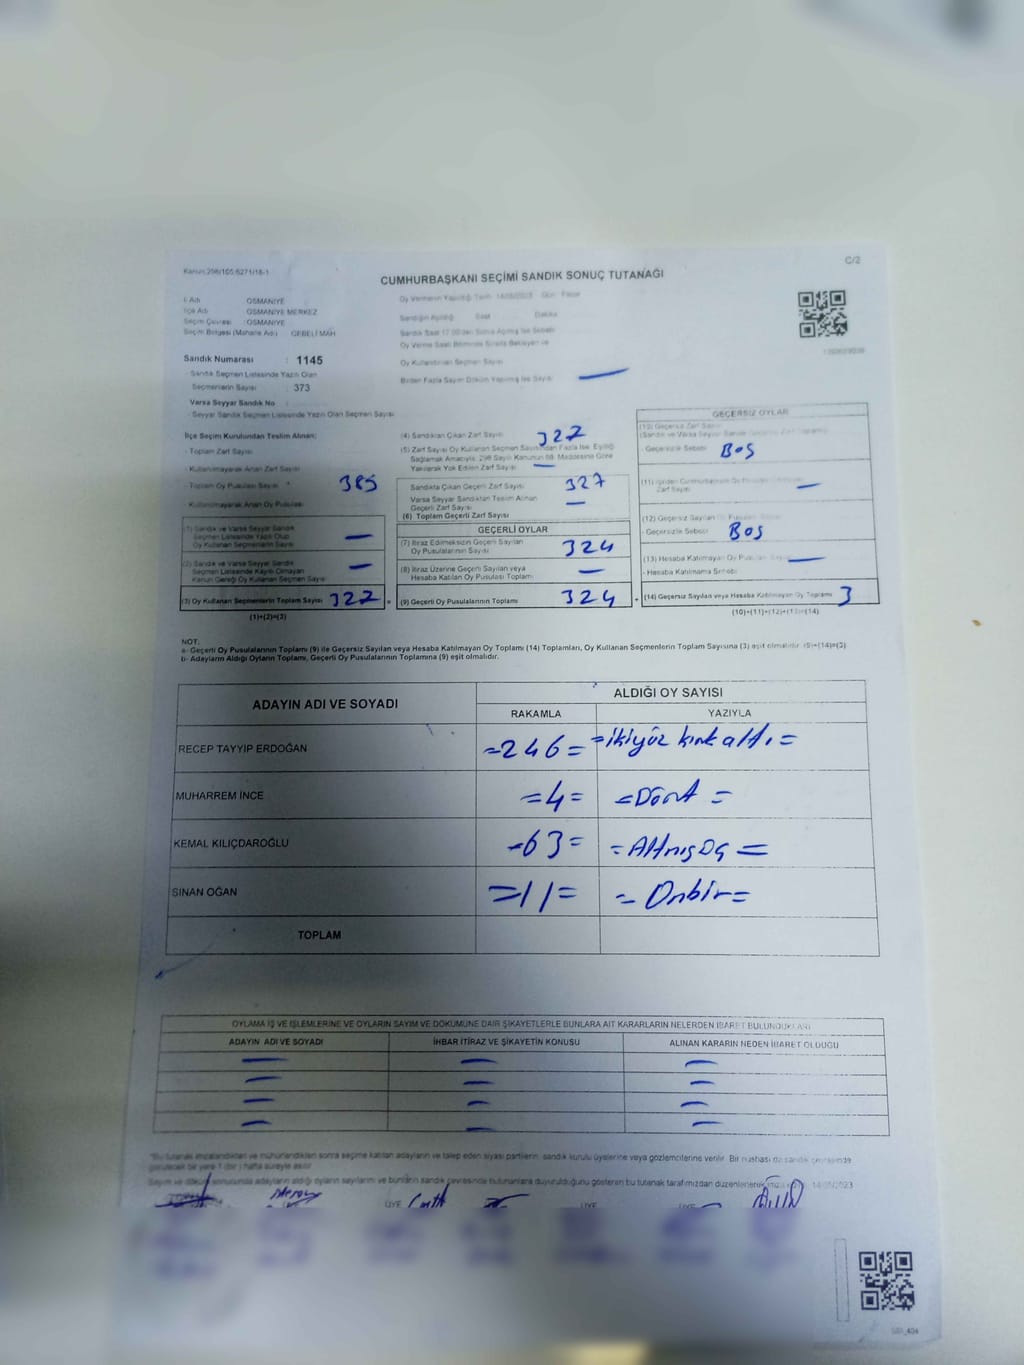 Kanun:298/105;6271/18-1
C/2
CUMHURBAŞKANI SEÇİMİ SANDIK SONUÇ TUTANAĞI
İl Adı OSMANİYE
İlçe Adı OSMANİYE MERKEZ
Seçim Çevresi : OSMANİYE
Seçim Bölgesi (Mahalle Adı) : CEBELİ MAH
Oy Vermenin Yapıldığı Tarih: 14/05/2023 Gün: Pazar
Sandığın Açıldığı Saat Dakika
Sandık Saat 17.00'den Sonra Açılmış İse Sebebi
Oy Verme Saati Bitiminde Sırada Bekleyen ve
Oy Kullandırılan Seçmen Sayısı
Birden Fazla Sayım Döküm Yapılmış İse Sayısı —
Sandık Numarası : 1145
- Sandık Seçmen Listesinde Yazılı Olan
Seçmenlerin Sayısı : 373
Varsa Seyyar Sandık No :
- Seyyar Sandık Seçmen Listesinde Yazılı Olan Seçmen Sayısı
İlçe Seçim Kurulundan Teslim Alınan:
- Toplam Zarf Sayısı
- Kullanılmayarak Artan Zarf Sayısı
- Toplam Oy Pusulası Sayısı 385
- Kullanılmayarak Artan Oy Pusulası
(1) Sandık ve Varsa Seyyar Sandık
Seçmen Listesinde Yazılı Olup
Oy Kullanan Seçmenlerin Sayısı —
(2) Sandık ve Varsa Seyyar Sandık
Seçmen Listesinde Kayıtlı Olmayan
Kanun Gereği Oy Kullanan Seçmen Sayısı —
(3) Oy Kullanan Seçmenlerin Toplam Sayısı 327 =
(1)+(2)=(3)
(4) Sandıktan Çıkan Zarf Sayısı 327
(5) Zarf Sayısı Oy Kullanan Seçmen Sayısından Fazla İse, Eşitliği
Sağlamak Amacıyla, 298 Sayılı Kanunun 98. Maddesine Göre
Yakılarak Yok Edilen Zarf Sayısı —
Sandıkta Çıkan Geçerli Zarf Sayısı 327
Varsa Seyyar Sandıktan Teslim Alınan
Geçerli Zarf Sayısı —
(6) Toplam Geçerli Zarf Sayısı
GEÇERLİ OYLAR
(7) İtiraz Edilmeksizin Geçerli Sayılan
Oy Pusulalarının Sayısı 324
(8) İtiraz Üzerine Geçerli Sayılan veya
Hesaba Katılan Oy Pusulası Toplamı —
(9) Geçerli Oy Pusulalarının Toplamı 324 +
GEÇERSİZ OYLAR
(10) Geçersiz Zarf Sayısı
- Geçersizlik Sebebi BOŞ
Zarf Sayısı —
(12) Geçersiz Sayılan Oy Pusulası Sayısı
- Geçersizlik Sebebi BOŞ
(13) Hesaba Katılmayan Oy Pusulası Sayısı —
- Hesaba Katılmama Sebebi
(14) Geçersiz Sayılan veya Hesaba Katılmayan Oy Toplamı 3
(10)+(11)+(12)+(13)=(14)
NOT:
a- Geçerli Oy Pusulalarının Toplamı (9) ile Geçersiz Sayılan veya Hesaba Katılmayan Oy Toplamı (14) Toplamları, Oy Kullanan Seçmenlerin Toplam Sayısına (3) eşit olmalıdır. (9)+(14)=(3)
b- Adayların Aldığı Oyların Toplamı, Geçerli Oy Pusulalarının Toplamına (9) eşit olmalıdır.
ADAYIN ADI VE SOYADI ALDIĞI OY SAYISI
RAKAMLA YAZIYLA
RECEP TAYYIP ERDOĞAN =246= =ikiyüz kırk altı=
MUHARREM İNCE =4= =Dört=
KEMAL KILIÇDAROĞLU -63= =Altmış Üç=
SİNAN OĞAN =11= =Onbir=
TOPLAM
OYLAMA İŞ VE İŞLEMLERİNE VE OYLARIN SAYIM VE DÖKÜMÜNE DAİR ŞİKAYETLERLE BUNLARA AİT KARARLARIN NELERDEN İBARET BULUNDUKLARI
ADAYIN ADI VE SOYADI İHBAR İTİRAZ VE ŞİKAYETİN KONUSU ALINAN KARARIN NEDEN İBARET OLDUĞU
— — —
— — —
— — —
— — —
*Bu tutanak imzalandıktan ve mühürlendikten sonra seçime katılan adayların ve talep eden siyasi partilerin, sandık kurulu üyelerine veya gözlemcilerine verilir. Bir nüshası da sandık çevresinde
görülecek bir yere 1 (bir) hafta süreyle asılır.
Sayım ve döküm sonucunda adayların aldığı oyların sayılarını ve bunların sandık çevresinde bulunanlara duyurulduğunu gösteren bu tutanak tarafımızdan düzenlenerek 14/05/2023
ÜYE ÜYE